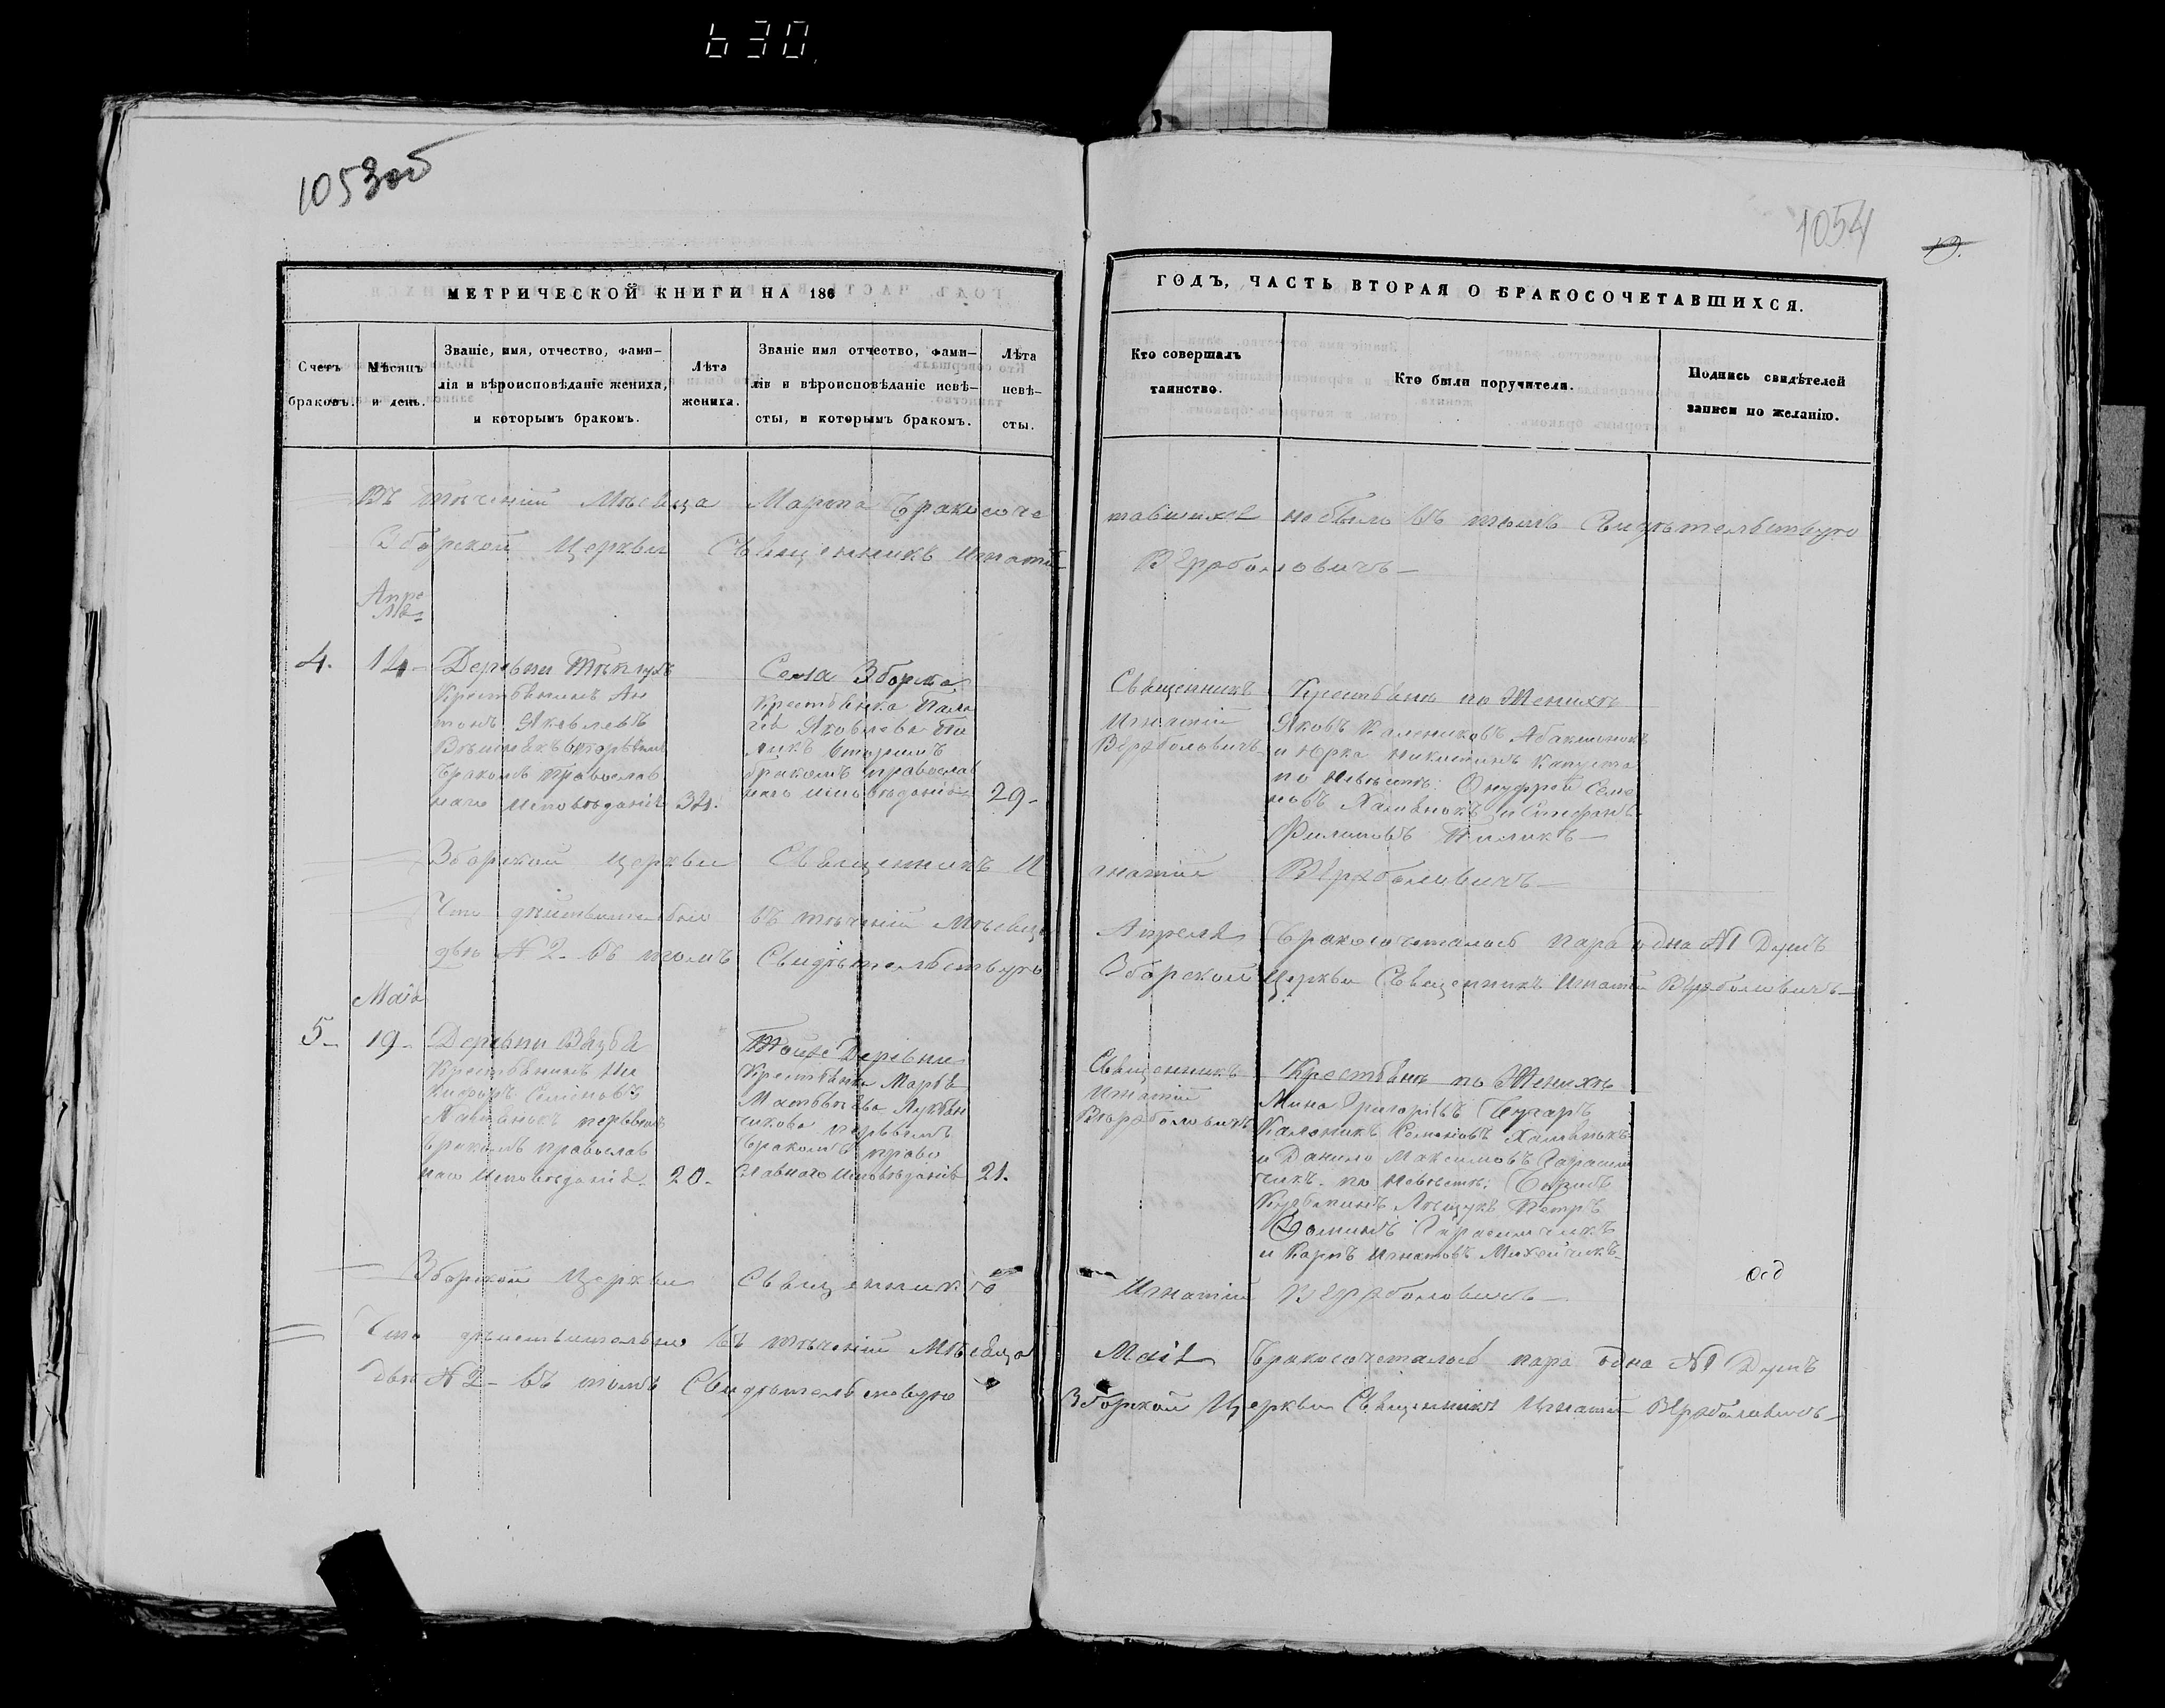 630
1053об
1054
19.
МЕТРИЧЕСКОЙ КНИГИ НА 186
ГОДЪ, ЧАСТЬ ВТОРАЯ О БРАКОСОЧЕТАВШИХСЯ.
Счетъ
браковъ.
Мѣсяцъ
и день.
Званіе, имя, отчество, фами-
лія и вѣроисповѣданіе жениха,
и которымъ бракомъ.
Лѣта
жениха.
Званіе имя отчество, фами-
лія и вѣроисповѣданіе невѣ-
сты, и которымъ бракомъ.
Лѣта
невѣ-
сты.
Кто совершалъ
таинство.
Кто были поручители.
Подпись свидѣтелей
записи по желанію.
Въ теченіи Мѣсяца Марта Бракосоче
тавшихся небыло въ томъ Свидѣтельствую
Зборской Церкви Священникъ Игнатій
Вержболовичъ
Апре
ля
4.
14
Деревни
Крестьянинъ Ан
тонъ Яковлевъ
вторымъ
бракомъ православ
наго исповѣданія
34.
Села Зборска
Крестьянка Пела
гея Яковлева Пи
ликъ вторымъ
бракомъ православ
наго исповѣданія
29
Священникъ
Игнатій
Вержболовичъ
Крестьяне по Женихѣ
Яковъ Калениковъ
и Юрка Никитинъ Капуста
по Невѣстѣ: Онуфрей Семе
новъ Халянокъ и Стефанъ
Филиповъ Пиликъ
Зборской церкви Священникъ И
гнатій Вержболовичъ
Что дѣйствительно въ теченіи Мѣсяца
Апреля Бракосочеталось пара одна №1 Душъ
двѣ №2 въ томъ Свидѣтельствую
Зборской Церкви Священникъ Игнатій Вержболовичъ
Маія
5
19
Деревни
Крестьянинъ Ни
кифоръ Семіновъ
Халянокъ первымъ
бракомъ православ
наго исповѣданія
20.
Тойже Деревни
Крестьянка Марѳа
Матвѣева
чикова первымъ
бракомъ право
славнаго исповѣданія
21.
Священникъ
Игнатій
Вержболовичъ
Крестьяне по Женихѣ
Мина Григоріевъ
Каленикъ Семеновъ Халянокъ
и Данило Максимовъ Гарасим
чикъ по Невѣстѣ:
Петръ
Ѳоминъ Гарасимчикъ
и Карпъ Игнатовъ
Зборской Церкви Священникъ
Игнатій Вержболовичъ
Что дѣйствительно въ теченіи Мѣсяца
Маія Бракосочеталось пара одна №1 Душъ
двѣ №2 въ томъ Свидѣтельствую
Зборской Церкви Священникъ Игнатій Вержболовичъ